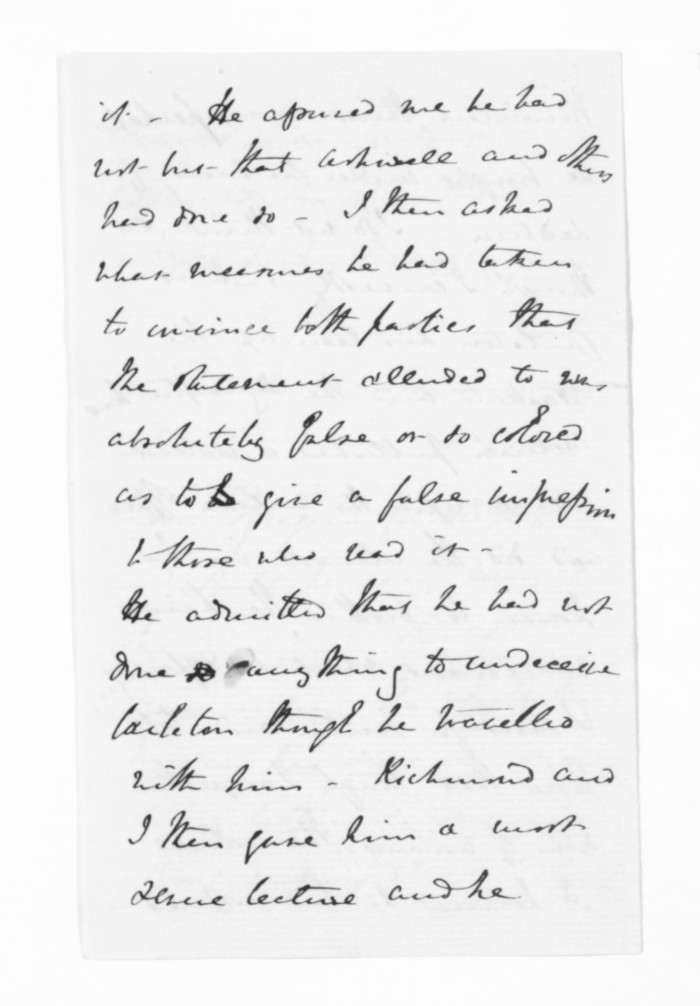 it - He assured me he had
not but that Ashwell and others
had done so - I then asked
what measures he had taken
to convince both parties that
the statement alluded to was
absolutely false or so colored
as to give a false impression
to those who read it -
He admitted that he had not
done anything to undeceive
Carleton though he travelled
with him - Richmond and
I then gave him a most
severe lecture and he